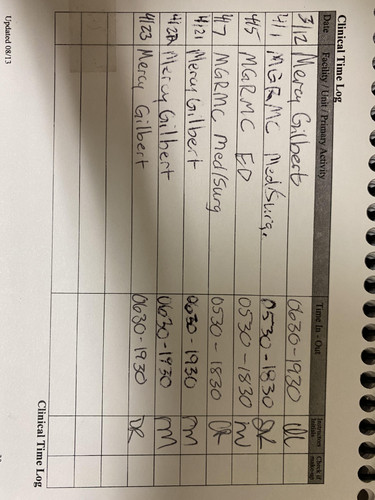 Clinical Time Log
Date Facility / Unit / Primary Activity Time In - Out Instructor Initials Check if make-up
3/12 Mercy Gilbert 0630-1930
4/1 MGRMC Med/Surg. 0530-1830
4/5 MGRMC ED 0530-1830
4/7 MGRMC Med/Surg 0530-1830
4/21 Mercy Gilbert 0630-1930
4/22 Mercy Gilbert 0630-1930
4/23 Mercy Gilbert 0630-1930 DR
Updated 08/13
Clinical Time Log